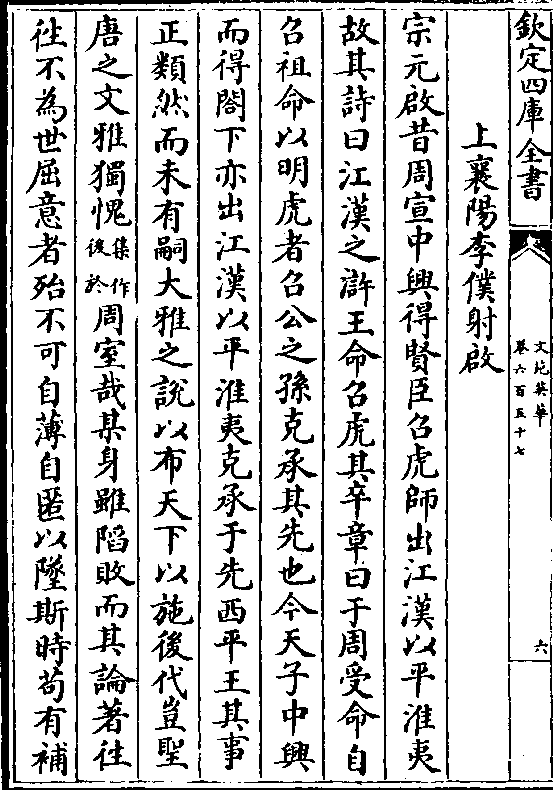 欽定四庫全書
文苑英華
卷六百五十七
六
上襄陽李僕射啟
宗元啟昔周宣中興得賢臣召虎師出江漢以平淮夷
故其詩曰江漢之滸王命召虎其卒章曰于周受命自
召祖命以明虎者召公之孫克承其先也今天子中興
而得閤下亦出江漢以平淮夷克承于先西平王其事
正類然而未有嗣大雅之說以布天下以施後代豈聖
唐之文雅獨愧集作後於周室哉某身雖䧟敗而其論著往
往不為世屈意者殆不可自薄自匿以墜斯時苟有補